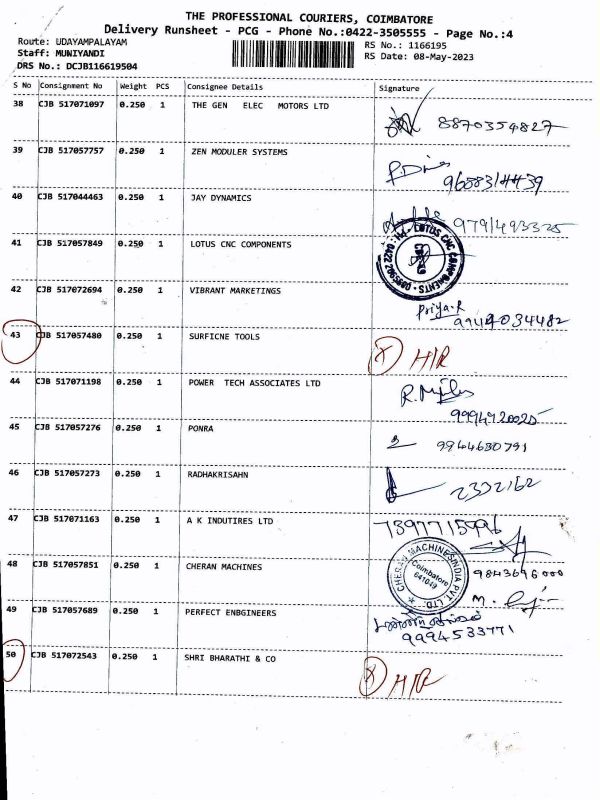 THE PROFESSIONAL COURIERS, COIMBATORE
Delivery Runsheet - PCG - Phone No.:0422-3505555 - Page No.:4
Route: UDAYAMPALAYAM RS No.: 1166195
Staff: MUNIYANDI RS Date: 08-May-2023
DRS No.: DCJB116619504
S No Consignment No Weight PCS Consignee Details Signature
38 CJB 517071097 0.250 1 THE GEN ELEC MOTORS LTD 8870354827
39 CJB 517057757 0.250 1 ZEN MODULER SYSTEMS
9688314439
40 CJB 517044463 0.250 1 JAY DYNAMICS 9791493325
41 CJB 517057849 0.250 1 LOTUS CNC COMPONENTS LOTUS CNC COMPONENTS
42 CJB 517072694 0.250 1 VIBRANT MARKETINGS Priya.R
9944034482
43 CJB 517057480 0.250 1 SURFICNE TOOLS H/R
44 CJB 517071198 0.250 1 POWER TECH ASSOCIATES LTD
9994920025
45 CJB 517057276 0.250 1 PONRA 9944630791
46 CJB 517057273 0.250 1 RADHAKRISAHN 2332162
47 CJB 517071163 0.250 1 A K INDUTIRES LTD 7397715996
48 CJB 517057851 0.250 1 CHERAN MACHINES CHERAN MACHINES INDIA PVT. LTD. Coimbatore 641049 9843696000
49 CJB 517057689 0.250 1 PERFECT ENBGINEERS
9994533771
50 CJB 517072543 0.250 1 SHRI BHARATHI & CO H/R